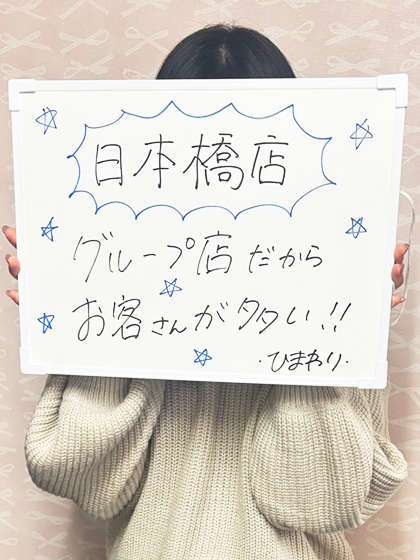 日本橋店
グループ店だから
お客さんが多い!!
・ひまわり・